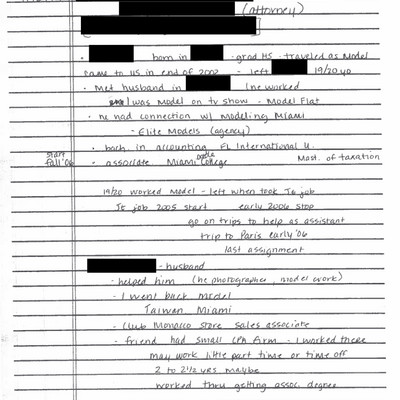 (attorney)
· born in - grad HS - traveled as model
came to US in end of 2002 - left 19/20 yo
· met husband in (he worked
I was model on tv show - Model Flat
· he had connection w/ modeling Miami
- Elite Models (agency)
· bach. in accounting FL International U.
start fall '06 · associate. Miami Dade College Mast. of taxation
19/20 worked model - left when took Je job
Je job 2005 start early 2006 stop
go on trips to help as assistant
trip to Paris early '06
last assignment
- husband
- helped him (he photographer, model work)
- I went back model
Taiwan, Miami
- Club Monaco store sales associate
- friend had small CPA firm - I worked there
may work little part time or time off
2 to 2 1/2 yrs maybe
worked thru getting assoc. degree